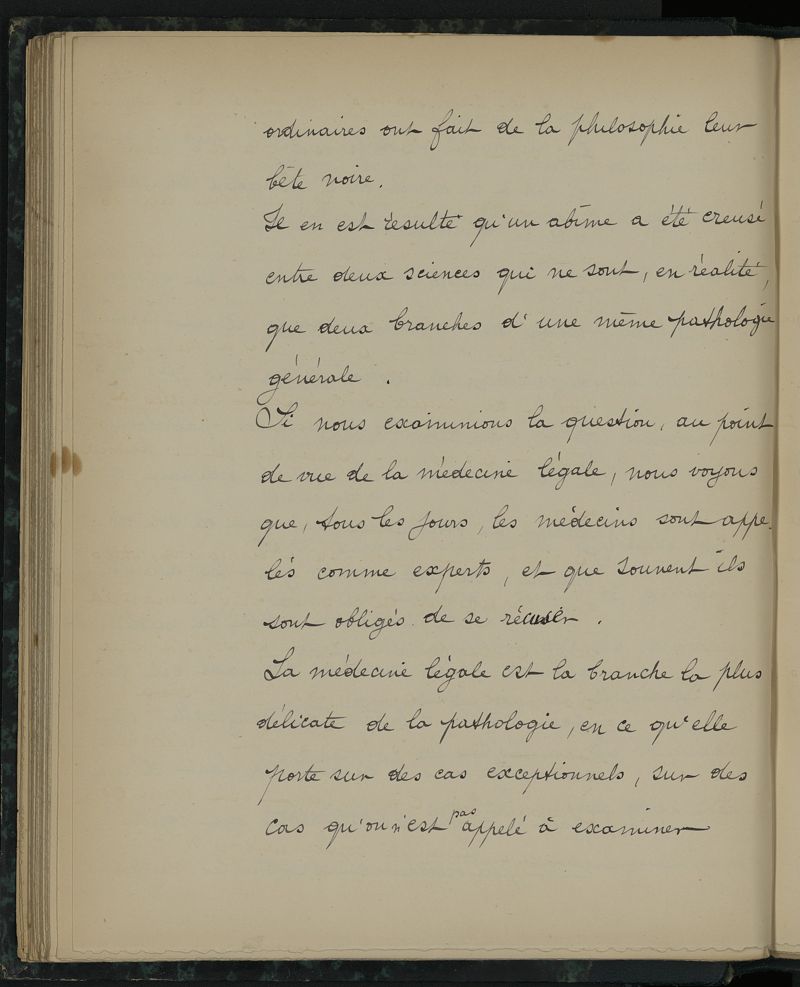 ordinaires ont fait de la philosophie leur
bête noire.
Il en est résulté qu'un abîme a été creusé
entre deux sciences qui ne sont, en réalité,
que deux branches d'une même pathologie
générale.
Si nous examinions la question, au point
de vue de la médecine légale, nous voyons
que, tous les jours, les médecins sont appe-
lés comme experts, et que souvent ils
sont obligés de se récuser.
La médecine légale est la branche la plus
délicate de la pathologie, en ce qu'elle
porte sur des cas exceptionnels, sur des
cas qu'on n'est pas appelé à examiner